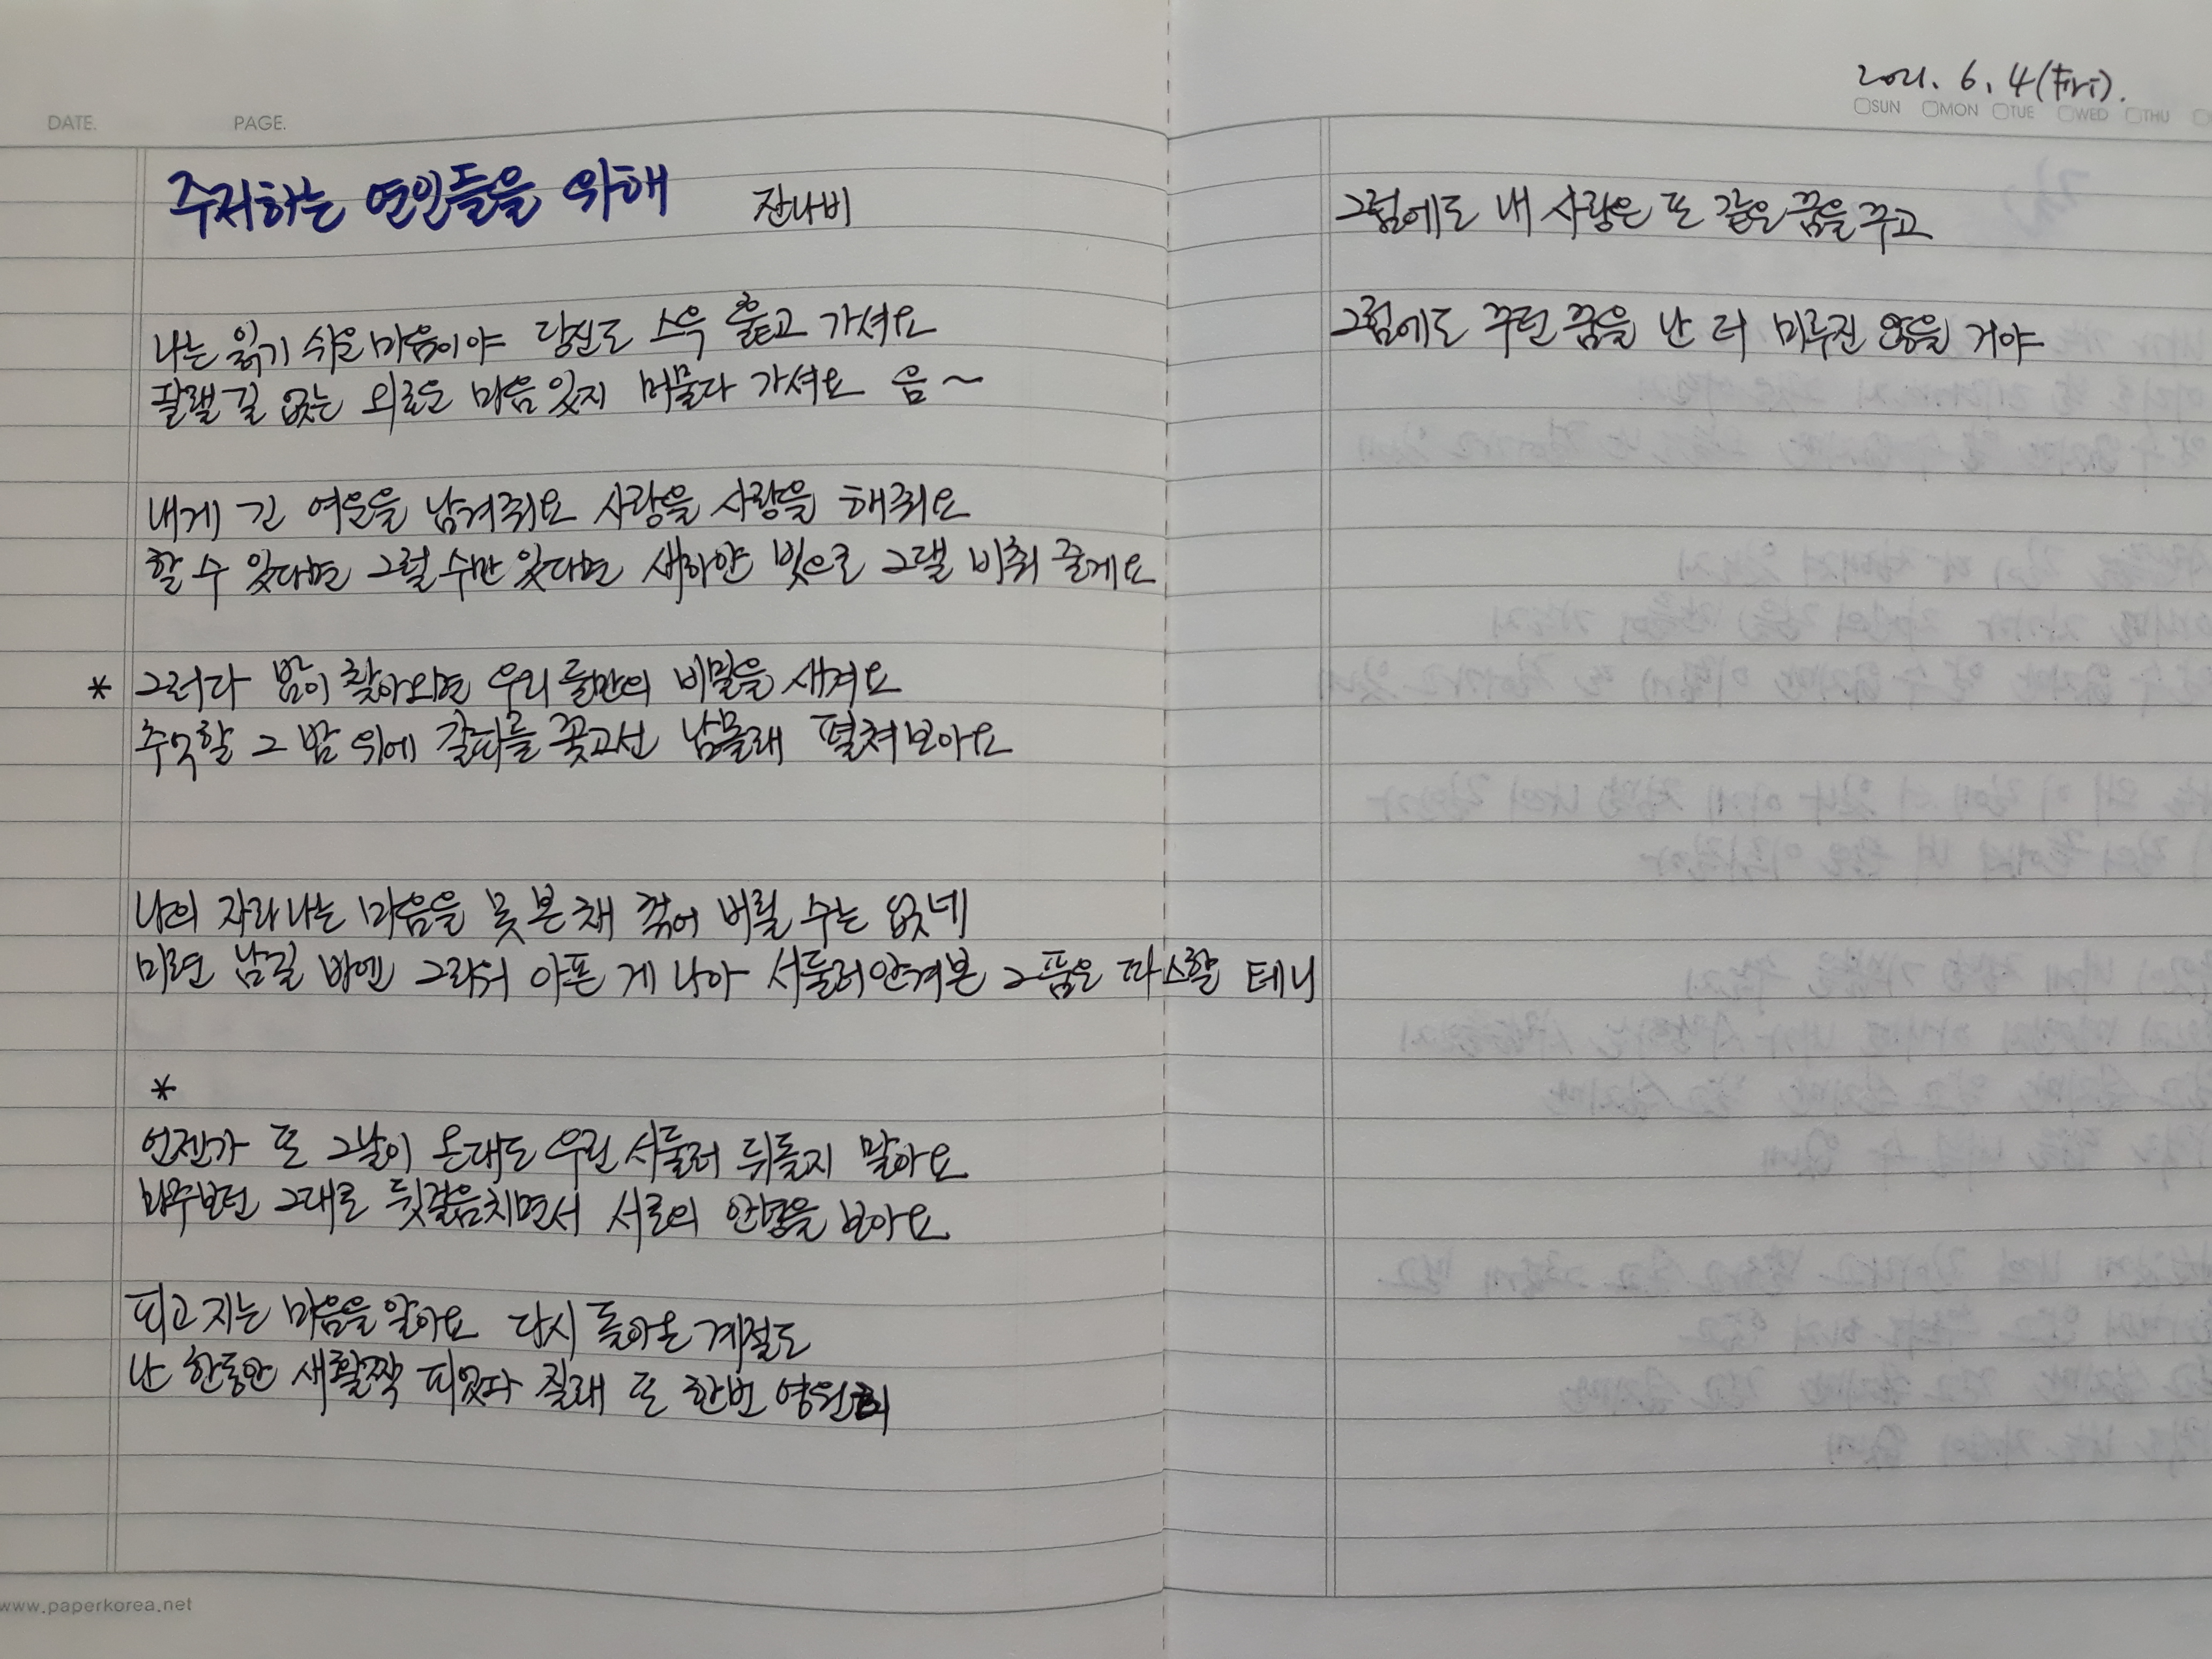 DATE.
PAGE.
주저하는 연인들을 위해 잔나비
나는 읽기 쉬운 마음이야 당신도 스윽 훑고 가셔요
달랠 길 없는 외로운 마음 있지 머물다 가셔요 음~
내게 긴 여운을 남겨줘요 사랑을 사랑을 해줘요
할 수 있다면 그럴 수만 있다면 새하얀 빛으로 그댈 비춰 줄게요
* 그러다 밤이 찾아오면 우리 둘만의 비밀을 새겨요
추억할 그 밤 위에 갈피를 꽂고선 남몰래 펼쳐보아요
나의 자라나는 마음을 못 본 채 꺾어 버릴 수는 없네
미련 남길 바엔 그리워 아픈 게 나아 서둘러안겨본 그 품은 따스할 테니
*
언젠가 또 그날이 온대도 우린 서둘러 뒤돌지 말아요
마주보던 그대로 뒷걸음치면서 서로의 안녕을 보아요
피고 지는 마음을 알아요 다시 돌아온 계절도
난 한동안 새활짝 피었다 질래 또 한번 영원히
www.paperkorea.net
2021. 6. 4 (Fri).
SUN MON TUE WED THU
그럼에도 내 사랑은 또 같은 꿈을 꾸고
그럼에도 꾸던 꿈을 난 더 미루진 않을 거야